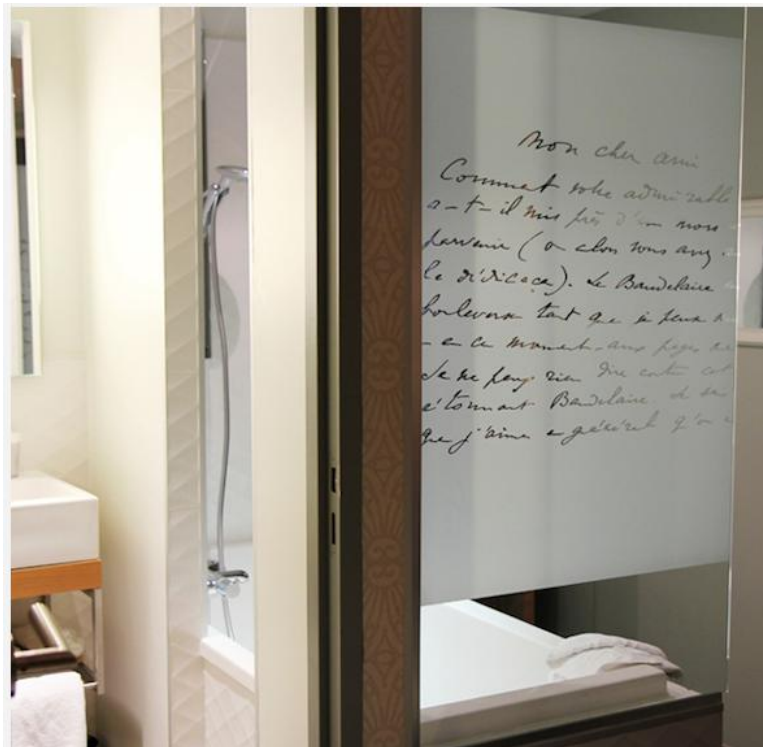 mon cher ami
Comment votre admirable
a-t-il mis près d'un mois
parvenir ( vous
la dédicace). Le Baudelaire
bouleverse tant que je peux
- en ce moment - aux pages
Je ne peux rien dire contre cet
étonnant Baudelaire.
que j'aime en général qu'on